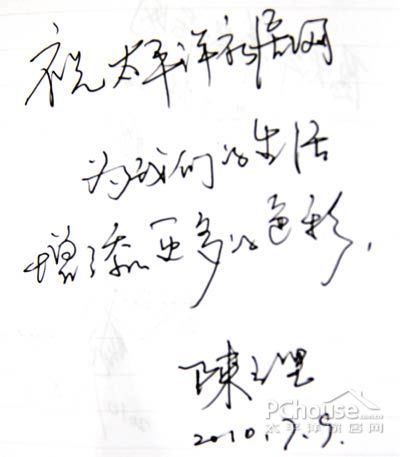 祝太平洋家居网
为我们的生活
增添更多的色彩.
陳
PChouse.com.cn
太平洋家居网
2010.7.9.